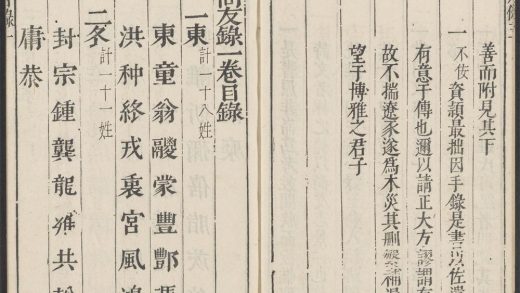 善而附見其下
一不佞資頴最拙因手錄是書以佐遺
有意于傳也邇以請正大方謬謂有
故不揣遼豕遂爲木災其刪補
望于博雅之君子
尚友錄一卷目錄
一東計一十八姓
東童翁鬷蒙豐酆馮
洪种終戎衷宮風
二冬計一十一姓
封宗鍾龔龍雍共松
庸恭
錄一